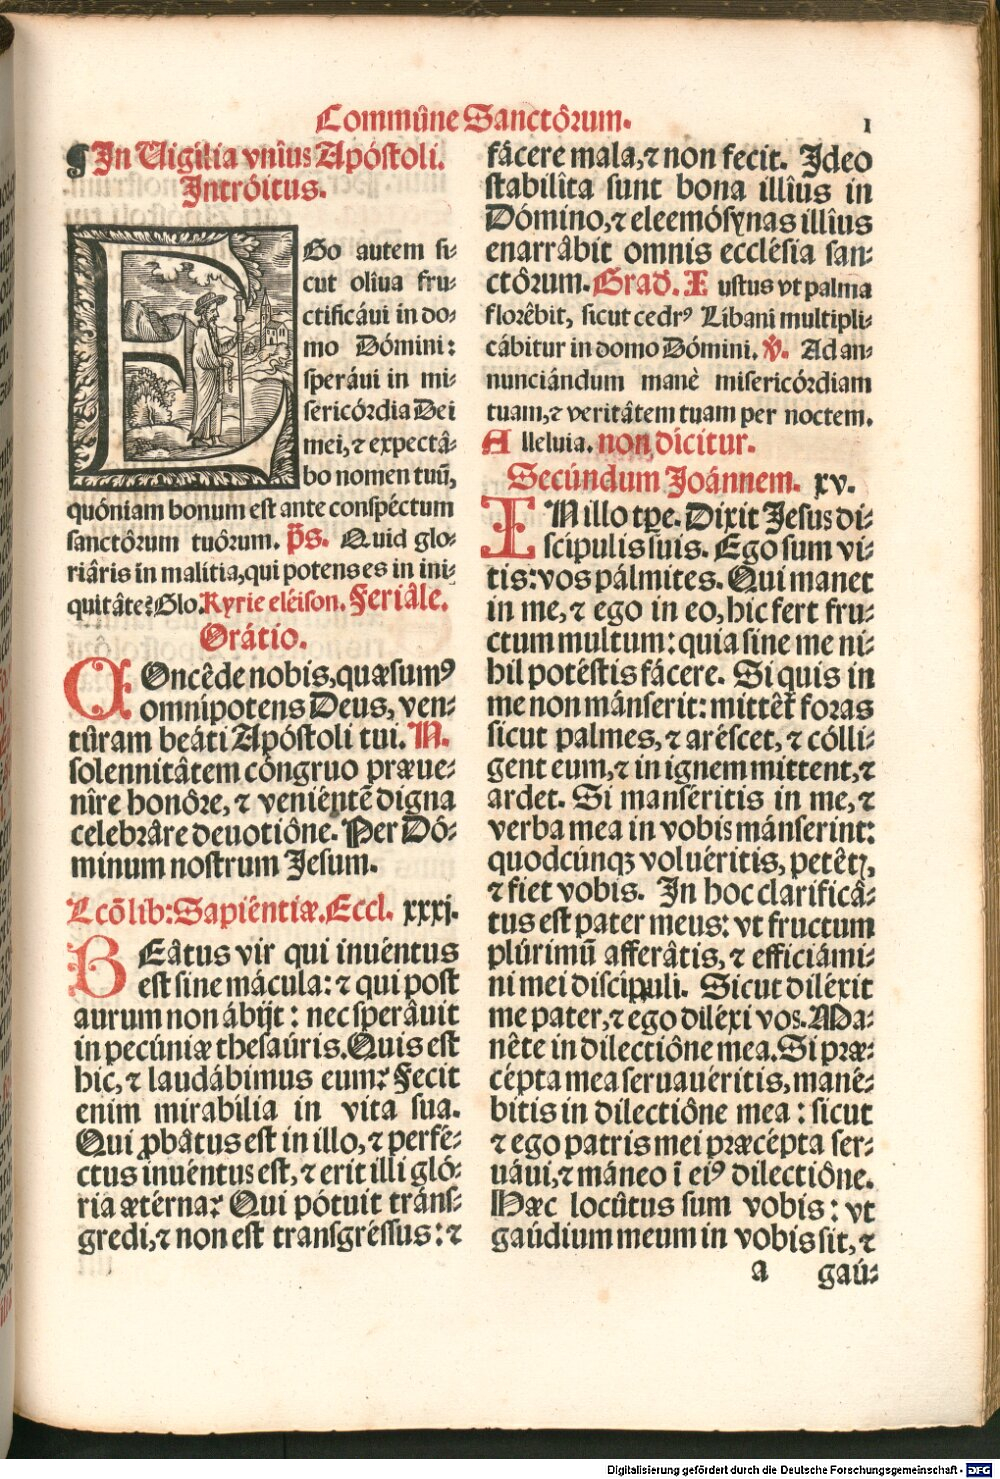 Commûne Sanctôrum.
1
¶ In Vigilia vníus Apóstoli.
Intróitus.
EGo autem si-
cut olíua fru-
ctificáui in do-
mo Dómini:
speráui in mi-
sericórdia Dei
mei, ⁊ expectâ-
bo nomen tuũ,
quóniam bonum est ante conspéctum
sanctôrum tuôrum. p̃s. Quid glo-
riâris in malítia, qui potens es in ini-
quitâte? Glo. Kyrie eléison. Feriâle.
Orátio.
COncêde nobis, quæsumꝰ
omnípotens Deus, ven-
tûram beáti Apóstoli tui. N.
solennitâtem cóngruo præue-
nîre honôre, ⁊ veniéntẽ digna
celebrâre deuotiône. Per Dó-
minum nostrum Jesum.
Lcõ lib: Sapiéntiæ. Eccl. xxxj.
BEâtus vir qui inuéntus
est sine mácula: ⁊ qui post
aurum non ábijt: nec sperâuit
in pecúniæ thesaúris. Quis est
hic, ⁊ laudábimus eum? Fecit
enim mirabília in vita sua.
Qui ꝓbâtus est in illo, ⁊ perfé-
ctus inuéntus est, ⁊ erit illi gló-
ria ætérna? Qui pótuit tráns-
gredi, ⁊ non est transgréssus: ⁊
fácere mala, ⁊ non fecit. Ideo
stabilîta sunt bona illîus in
Dómino, ⁊ eleemósynas illîus
enarrâbit omnis ecclésia san-
ctôrum. Grad. Iustus vt palma
florêbit, sicut cedrꝰ Líbani multipli-
cábitur in domo Dómini. ℣. Ad an-
nunciándum manè misericórdiam
tuam, ⁊ veritâtem tuam per noctem.
Alleluia. non dícitur.
Secúndum Joánnem. xv.
IN illo tp̃e. Dixit Jesus di-
scípulis suis. Ego sum vi-
tis: vos pálmites. Qui manet
in me, ⁊ ego in eo, hic fert fru-
ctum multum: quia sine me ni-
hil potéstis fácere. Si quis in
me non mánserit: mittét̃ foras
sicut palmes, ⁊ aréscet, ⁊ cólli-
gent eum, ⁊ in ignem mittent, ⁊
ardet. Si manséritis in me, ⁊
verba mea in vobis mánserint:
quodcúnqꝫ voluéritis, petêtꝭ,
⁊ fiet vobis. In hoc clarificâ-
tus est pater meus: vt fructum
plúrimũ afferâtis, ⁊ efficiámi-
ni mei discípuli. Sicut diléxit
me pater, ⁊ ego diléxi vos. Ma-
nête in dilectiône mea. Si præ-
cépta mea seruauéritis, manê-
bitis in dilectiône mea: sicut
⁊ ego patris mei præcépta ser-
uáui, ⁊ máneo ĩ eiꝰ dilectiône.
Hæc locûtus sum vobis: vt
gaúdium meum in vobis sit, ⁊
a gaú-
Digitalisierung gefördert durch die Deutsche Forschungsgemeinschaft - DFG